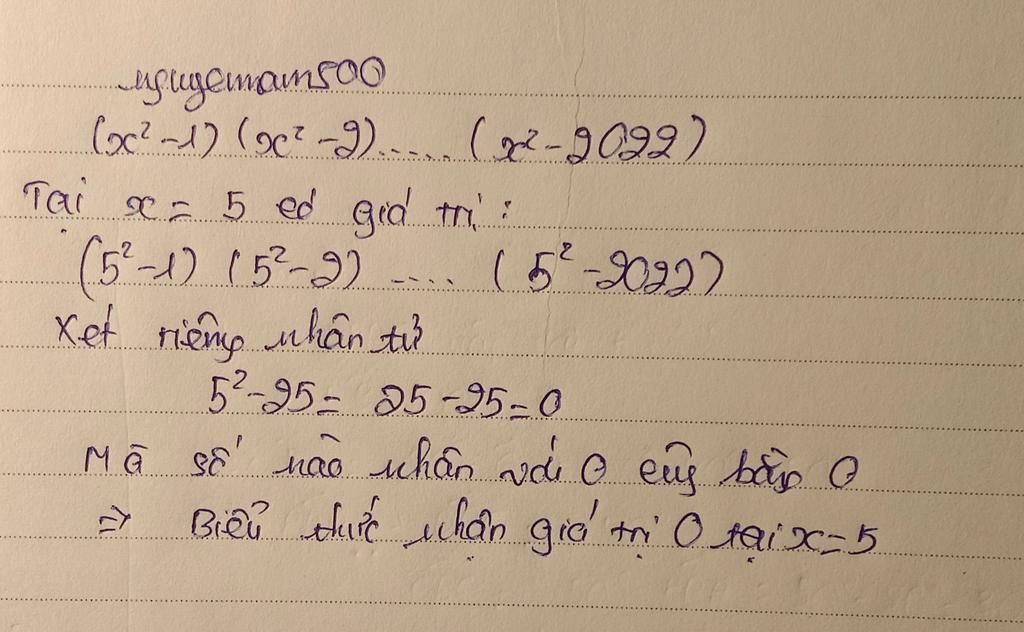 nguyenam500
(x² - 1) (x² - 2)..... (x² - 2022)
Tại x = 5 có giá trị :
(5² - 1) (5² - 2) .... (5² - 2022)
Xét riêng nhân tử
5² - 25 = 25 - 25 = 0
Mà số nào nhân với 0 cũg bằng 0
⇒ Biểu thức nhận giá trị 0 tại x = 5